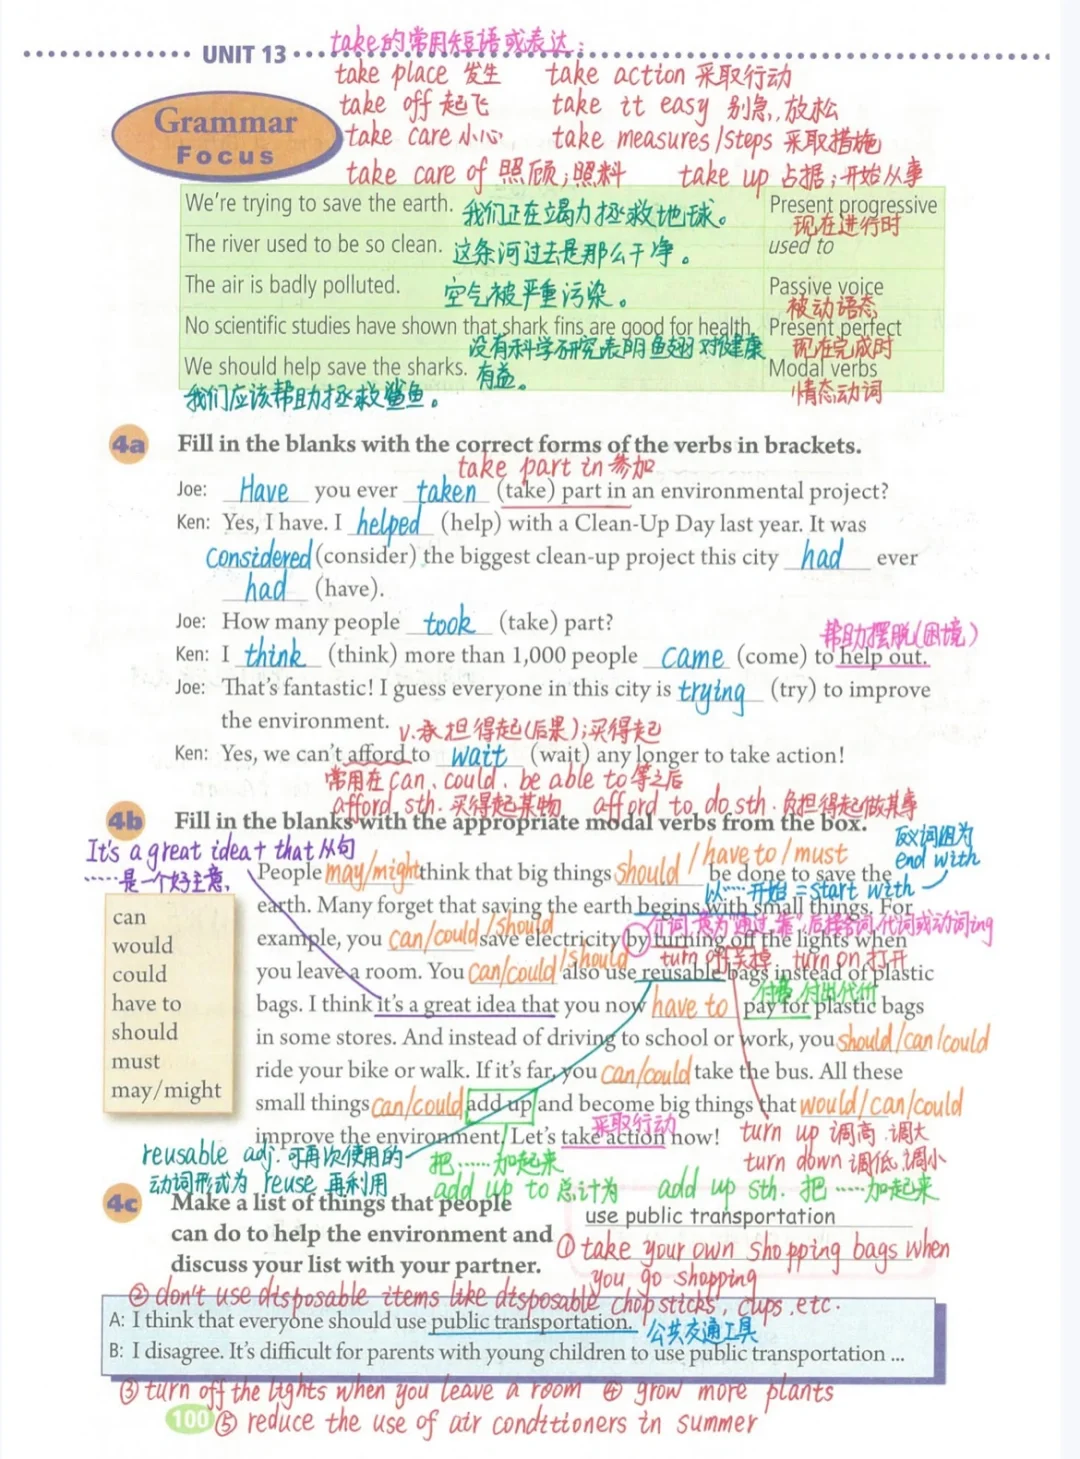 UNIT 13
take的常用短语或表达:
take place 发生 take action 采取行动
take off 起飞 take it easy 别急,放松
take care 小心 take measures/steps 采取措施
take care of 照顾;照料 take up 占据;开始从事
Grammar
Focus
We're trying to save the earth. 我们正在竭力拯救地球。 Present progressive
现在进行时
The river used to be so clean. 这条河过去是那么干净。 used to
The air is badly polluted. 空气被严重污染。 Passive voice
被动语态
No scientific studies have shown that shark fins are good for health. Present perfect
没有科学研究表明鱼翅对健康 现在完成时
We should help save the sharks. 有益。 Modal verbs
我们应该帮助拯救鲨鱼。 情态动词
4a Fill in the blanks with the correct forms of the verbs in brackets.
take part in 参加
Joe: Have you ever taken (take) part in an environmental project?
Ken: Yes, I have. I helped (help) with a Clean-Up Day last year. It was
considered (consider) the biggest clean-up project this city had ever
had (have).
Joe: How many people took (take) part?
帮助摆脱(困境)
Ken: I think (think) more than 1,000 people came (come) to help out.
Joe: That's fantastic! I guess everyone in this city is trying (try) to improve
the environment.
v.承担得起(后果);买得起
Ken: Yes, we can't afford to wait (wait) any longer to take action!
常用在can、could、be able to等之后
afford sth. 买得起某物 afford to do sth. 负担得起做某事
4b Fill in the blanks with the appropriate modal verbs from the box.
It's a great idea + that从句
……是一个好主意
反义词组为
end with
can
would
could
have to
should
must
may/might
People may/might think that big things should /have to/must be done to save the
以……开始 =start with
earth. Many forget that saving the earth begins with small things. For
介词,意为"通过,靠",后接名词、代词或动词ing
example, you can/could/should save electricity by turning off the lights when
turn off 关掉 turn on 打开
you leave a room. You can/could/should also use reusable bags instead of plastic
付费,付出代价
bags. I think it's a great idea that you now have to pay for plastic bags
in some stores. And instead of driving to school or work, you should/can/could
ride your bike or walk. If it's far, you can/could take the bus. All these
small things can/could add up and become big things that would/can/could
采取行动
improve the environment. Let's take action now!
turn up 调高,调大
turn down 调低,调小
reusable adj. 可再次使用的
动词形式为 reuse 再利用
把……加起来
add up to 总计为 add up sth. 把……加起来
4c Make a list of things that people
can do to help the environment and
discuss your list with your partner.
use public transportation
① take your own shopping bags when
you go shopping
② don't use disposable items like disposable chopsticks, cups, etc.
A: I think that everyone should use public transportation. 公共交通工具
B: I disagree. It's difficult for parents with young children to use public transportation ...
③ turn off the lights when you leave a room ④ grow more plants
100 ⑤ reduce the use of air conditioners in summer